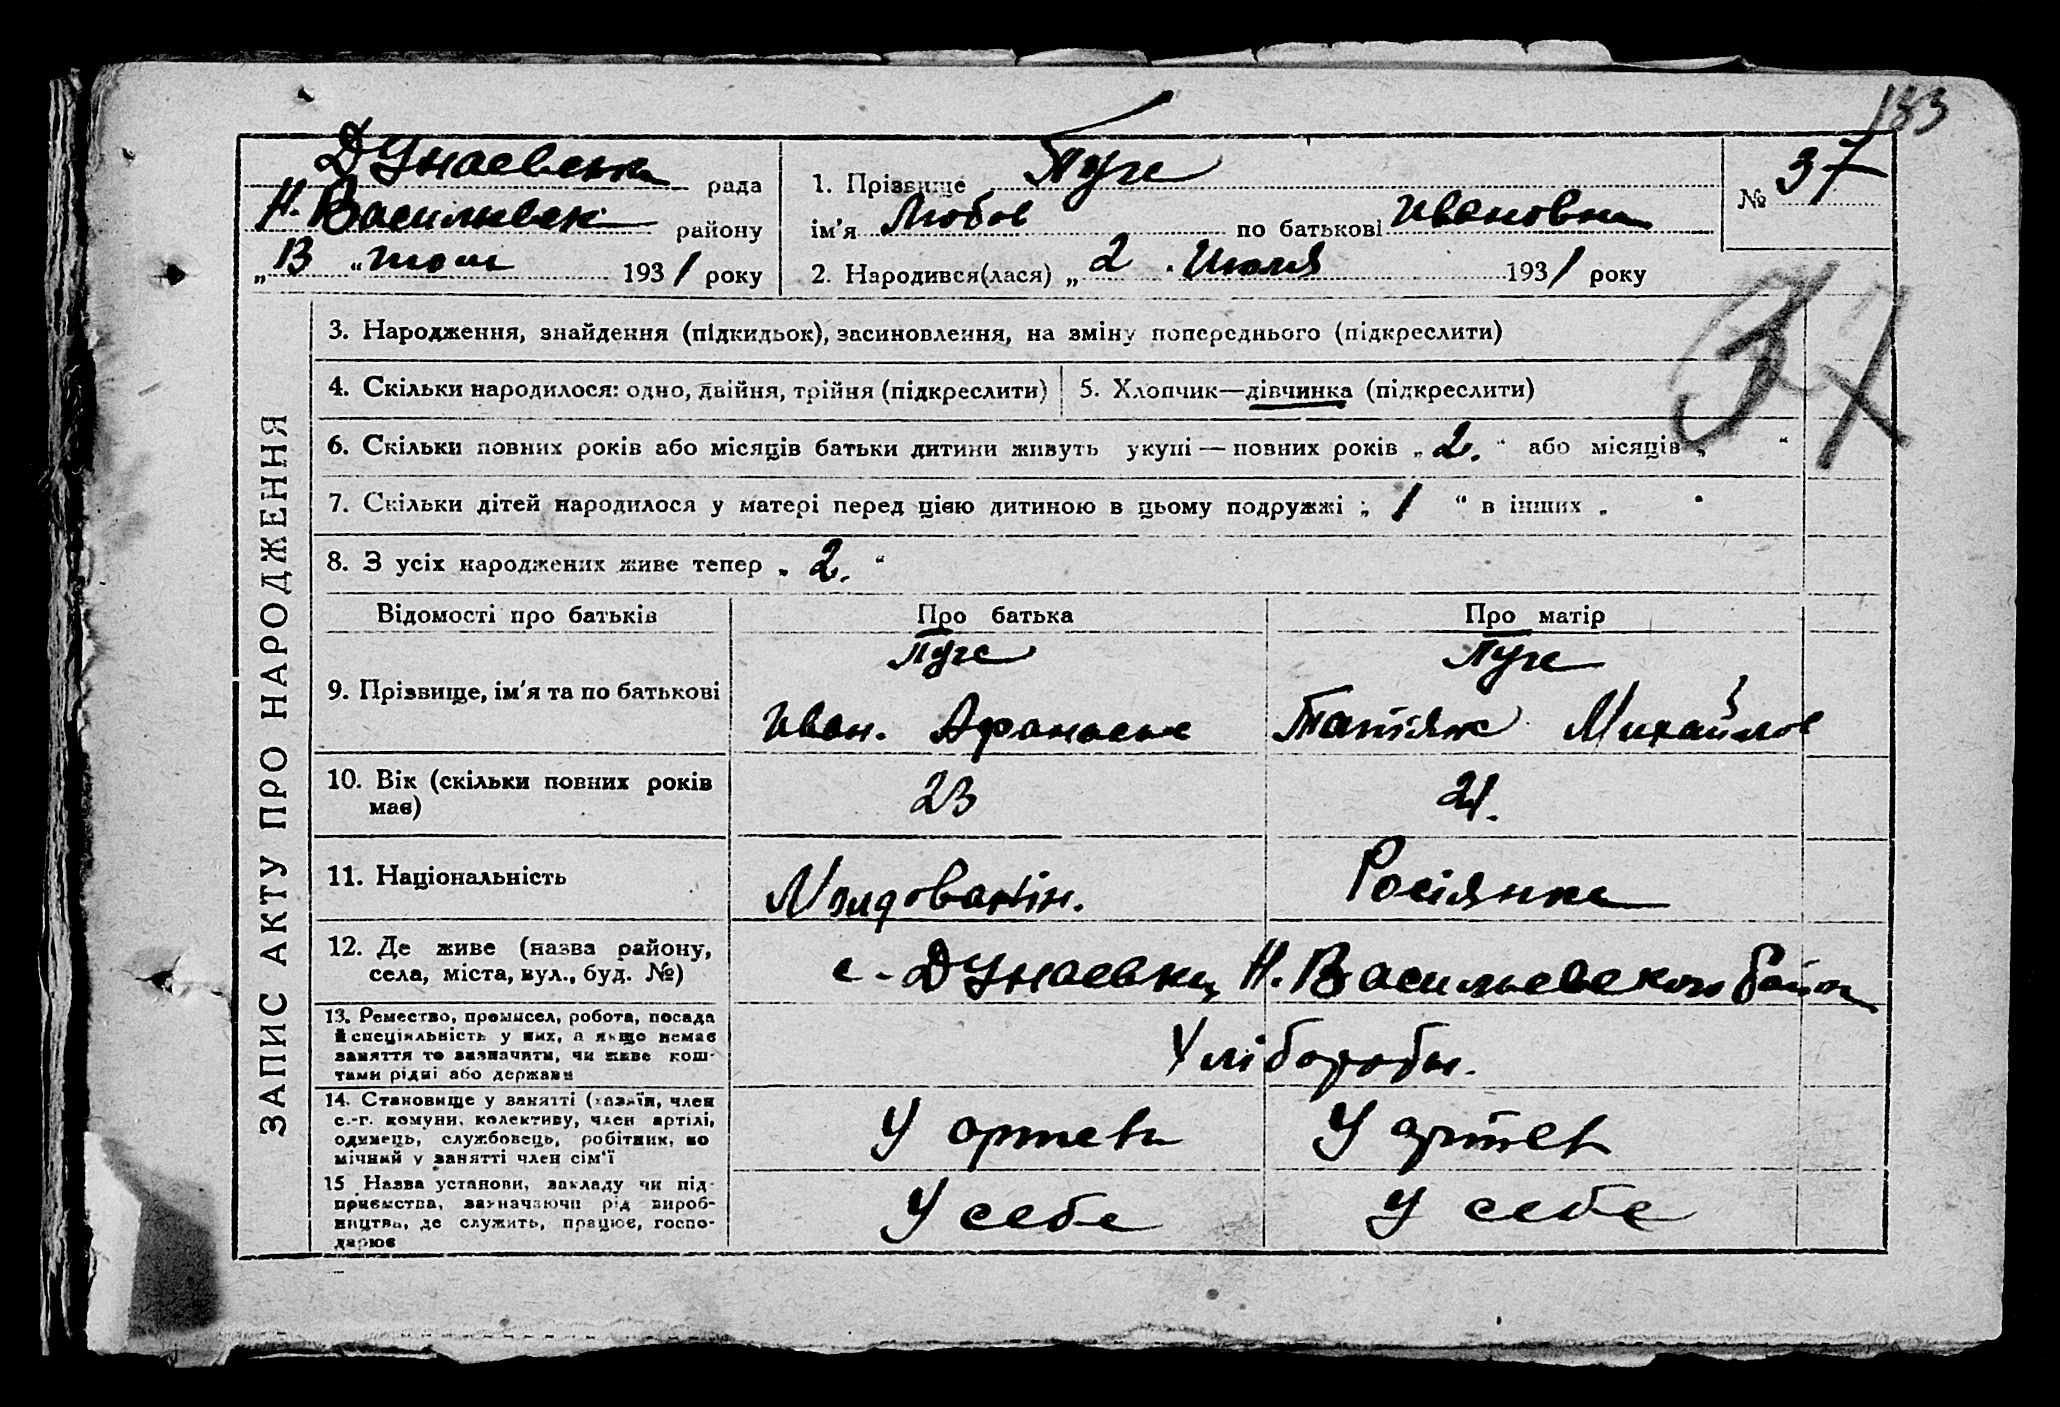 183
Дунаевська рада
Н. Васильевск. району
„ В “ 1931 року
1. Прізвище Пуге
ім'я Любов по батькові Ивановна
2. Народився(лася) „ 2 “ Июля 1931 року
№ 37
37
ЗАПИС АКТУ ПРО НАРОДЖЕННЯ
3. Народження, знайдення (підкидьок), засиновлення, на зміну попереднього (підкреслити)
4. Скільки народилося: одно, двійня, трійня (підкреслити)
5. Хлопчик—дівчинка (підкреслити)
6. Скільки повних років або місяців батьки дитини живуть укупі — повних років „ 2. “ або місяців „ “
7. Скільки дітей народилося у матері перед цією дитиною в цьому подружжі „ 1 “ в інших „ “
8. З усіх народжених живе тепер „ 2. “
Відомості про батьків Про батька Про матір
9. Прізвище, ім'я та по батькові
Пуге
Иван. Афанасье
Пуге
Татіян Михайлов
10. Вік (скільки повних років
має)
23
21.
11. Національність
Молдованін.
Росіянка
12. Де живе (назва району,
села, міста, вул., буд. №)
с. Дунаевки Н. Васильевского район
13. Ремество, промисел, робота, посада
й спеціяльність у них, а якщо немає
заняття то зазначити, чи живе кош-
тами рідні або держави
Хліборобы.
14. Становище у занятті (хазяїн, член
с.-г. комуни, колективу, член артілі,
одинець, службовець, робітник, по
мічний у занятті член сім'ї
У
У
15 Назва установи, закладу чи під-
приємства, зазначаючи рід вироб-
ництва, де служить, працює, госпо-
дарює
У себе
У себе